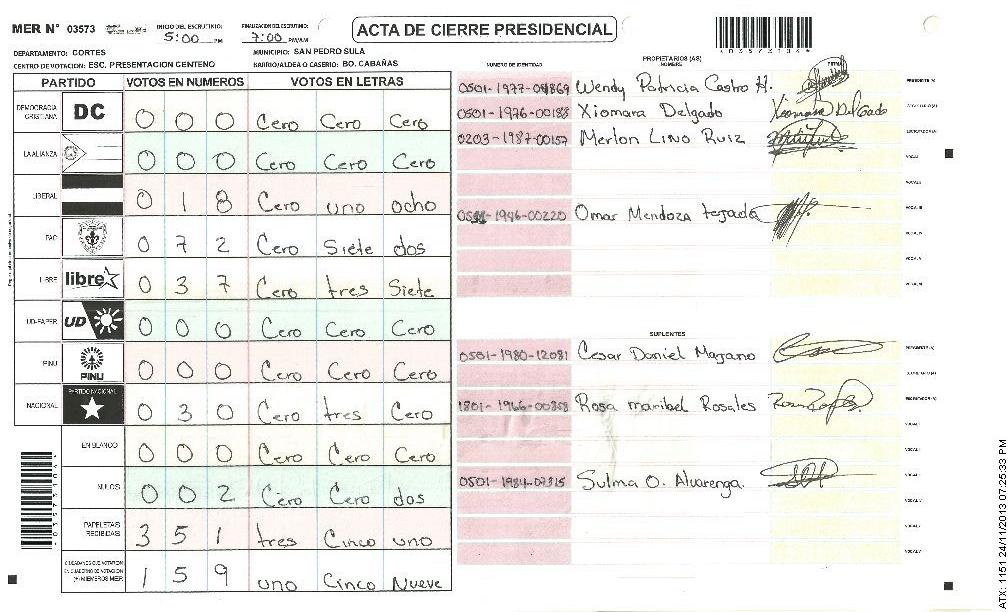 MER N° 03573
INICIO DEL ESCRUTINIO: 5:00 PM
FINALIZACION DEL ESCRUTINIO: 7:00 PM/AM
ACTA DE CIERRE PRESIDENCIAL
DEPARTAMENTO: CORTES
MUNICIPIO: SAN PEDRO SULA
CENTRO DE VOTACION: ESC. PRESENTACION CENTENO
BARRIO/ALDEA O CASERIO: BO. CABAÑAS
PARTIDO VOTOS EN NUMEROS VOTOS EN LETRAS
DEMOCRACIA CRISTIANA DC 0 0 0 Cero Cero Cero
LA ALIANZA 0 0 0 Cero Cero Cero
LIBERAL 0 1 8 Cero uno ocho
PAC 0 7 2 Cero Siete dos
LIBRE libre 0 3 7 Cero tres Siete
UD-FAPER UD 0 0 0 Cero Cero Cero
PINU PINU 0 0 0 Cero Cero Cero
NACIONAL PARTIDO NACIONAL 0 3 0 Cero tres Cero
EN BLANCO 0 0 0 Cero Cero Cero
NULOS 0 0 2 Cero Cero dos
PAPELETAS RECIBIDAS 3 5 1 tres Cinco uno
CIUDADANOS QUE VOTARON EN CUADERNO DE VOTACION (+) MIEMBROS MER 1 5 9 uno Cinco Nueve
NUMERO DE IDENTIDAD
PROPIETARIOS (AS)
NOMBRE
FIRMA
0501-1977-04869 Wendy Patricia Castro H. PRESIDENTE (A)
0501-1976-00188 Xiomara Delgado Xiomara Delgado
0203-1987-00157 Merlon Lino Ruiz ESCRUTADOR (A)
VOCAL I
VOCAL II
-1946-00220 Omar Mendoza tejada VOCAL III
VOCAL IV
VOCAL V
VOCAL VI
SUPLENTES
0501-1980-12081 Cesar Daniel Magano PRESIDENTE (A)
SECRETARIO (A)
1801-1966-00358 Rosa maribel Rosales ESCRUTADOR (A)
VOCAL I
0501-1984-07315 Sulma O. Alvarenga.
VOCAL V
ATX: 1151 24/11/2013 07:25:33 PM